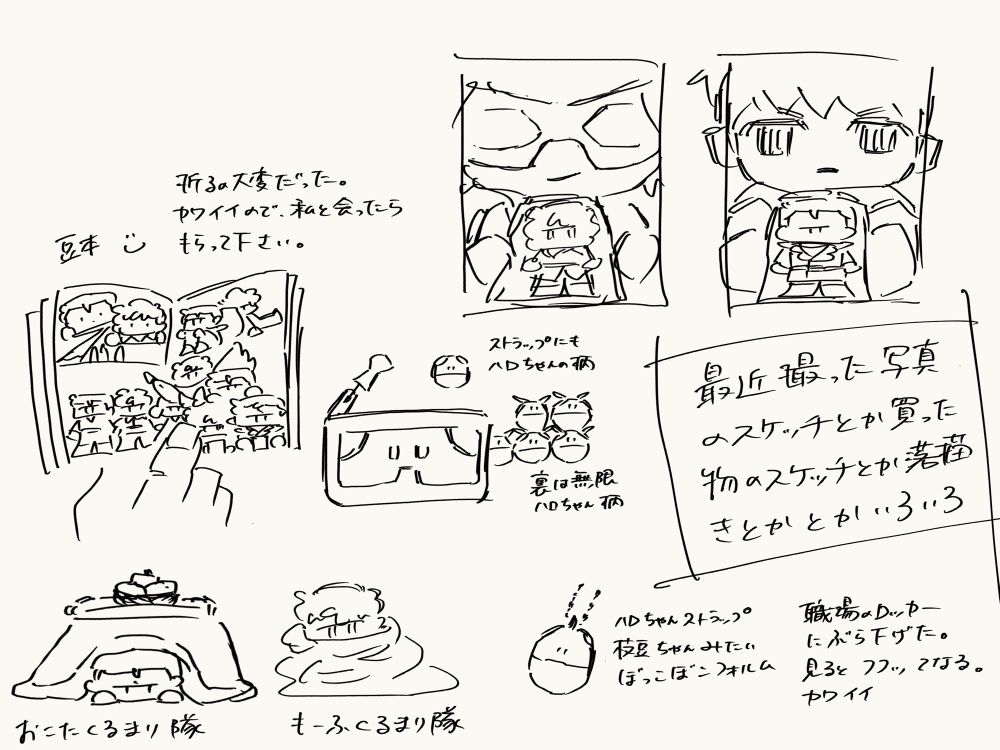 折るの大変だった。
カワイイので、私と会ったら
もらって下さい。
豆本
ストラップにも
ハロちゃんの柄
裏は無限
ハロちゃん柄
最近撮った写真
のスケッチとか買った
物のスケッチとか落描
きとかとかいろいろ
おこたくるまり隊
もーふくるまり隊
ハロちゃんストラップ
枝豆ちゃんみたい
ぼっこぼこフォルム
職場のロッカー
にぶら下げた。
見るとフフッてなる。
カワイイ